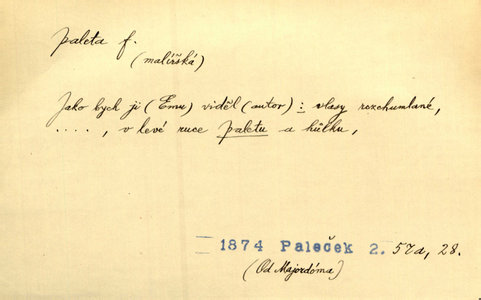 paleta f.
(malířská)
Jako bych ji (Emu) viděl (autor) : vlasy rozchumlané,
. . . . , v levé ruce paletu a hůlku,
1874 Paleček 2. 57a, 28.
(Od Majordóma)